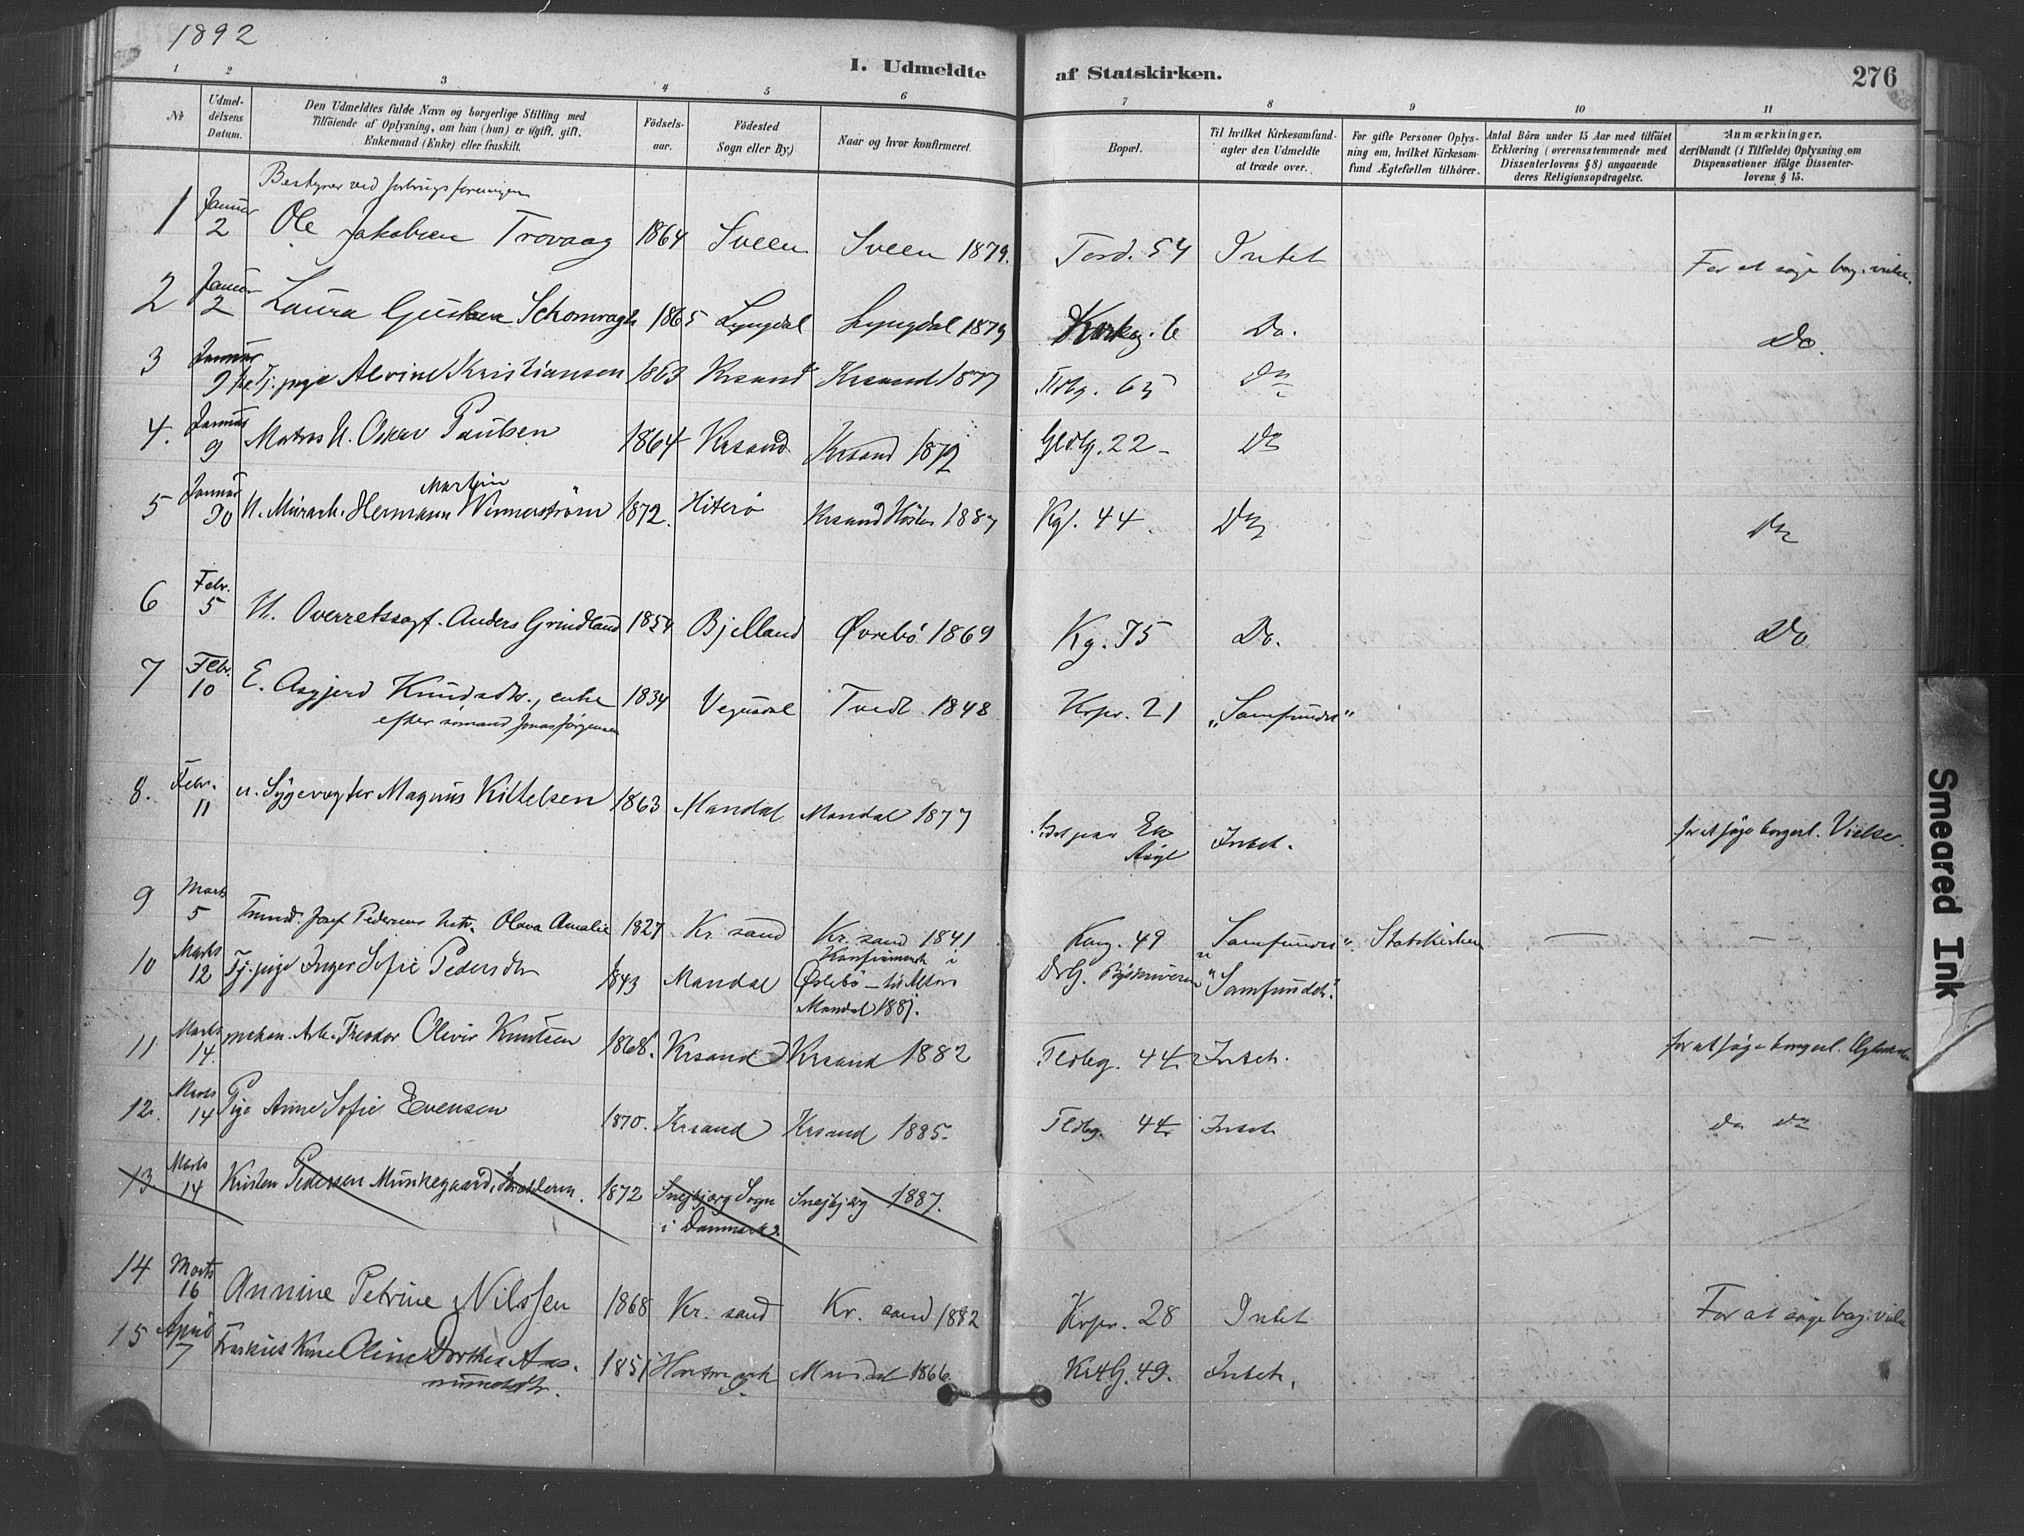 1892
I. Udmeldte af Statskirken.
276
1 2 3 4 5 6 7 8 9 10 11
No
Udmeldelsens Datum.
Den Udmeldtes fulde Navn og borgerlige Stilling med
Tilföiende af Oplysning, om han (hun) er ugift, gift,
Enkemand (Enke) eller fraskilt.
Födselsaar.
Födested
Sogn eller By.)
Naar og hvor konfirmeret.
Bopæl.
Til hvilket Kirkesamfund agter den Udmeldte at træde over.
For gifte Personer Oplysning om, hvilket Kirkesamfund Ægtefællen tilhörer.
Antal Börn under 15 Aar med tilföiet Erklæring (overensstemmende med Dissenterlovens § 8) angaaende deres Religionsopdragelse.
Anmærkninger, deriblandt (i Tilfælde) Oplysning om Dispensationer ifölge Dissenterlovens § 15.
Bestyrer ved forbrugsforeningen
1 Januar 2 Ole Jakobsen Trovaag 1864 Sveen Sveen 1879. Tord. 54 Intet For at söge borg. vielse.
2 Januar 2 Laura 1865 Lyngdal Lyngdal 1879 6 Do. Do.
3 Januar 9 Tj. pige Alvine Kristiansen 1863 Krsand Krsand 1877 65 Do
4. Januar 9 Matros U. Oskar Paulsen 1864 Krsand Krsand 22 Do
Martin
5 Januar 30 U. Murarb. Hermann Wennerström 1872. Hiterö Krsand Hösten 1887 Kgf. 44 Do Do
6 Febr. 5 U. Overretssagf. Anders Grindland 1854 Bjelland Øvrebö 1869 Kg. 75 Do. Do
7 Febr. 10 E. Asgjerd Knudsdtr., enke 1834 Vegusdal Tvedt 1848 Krpr. 21 „Samfundet"
efter sömand Jonas Jörgensen
8. Febr. 11 u. Sygevogter Magnus Kittelsen 1863 Mandal Mandal 1877 Eg Asyl Intet. for at söge borgerl. Vielse.
9 Marts 5 Josef Pedersens Olava Amalie 1827 Kr. sand Kr. sand 1841 Kong. 49 „Samfundet" Statskirken — —
10 Marts 12 Tj. pige Inger Sofie Pedersdtr 1843 Mandal Konfirmeret i Øslebö – til Alters Mandal 1881. „Samfundet."
11 Marts 14. mekan. Arb. Theodor Olivir Knutsen 1868. Krsand Krsand 1882 Fldbg. 44 Intet. for at söge borgerl.
12. Marts 14 Pige Anne Sofie Evensen 1870. Krsand Krsand 1885. Fldbg. 44 Intet do do
13. Marts 14 Kristen Pedersen Munkegaard, 1872 Snejbjerg Sogn i Danmark. Snejbjerg 1887.
14 Marts 16 Annine Petrine Nilssen 1868 Kr. sand Kr. sand 1882 Krpr. 28 Intet For at söge borg. vielse
15 April 7 Fraskilt Kone Oline Dorthea Aasmundsdtr. 1851 Mandal 1866. 49. Intet.
Smeared Ink